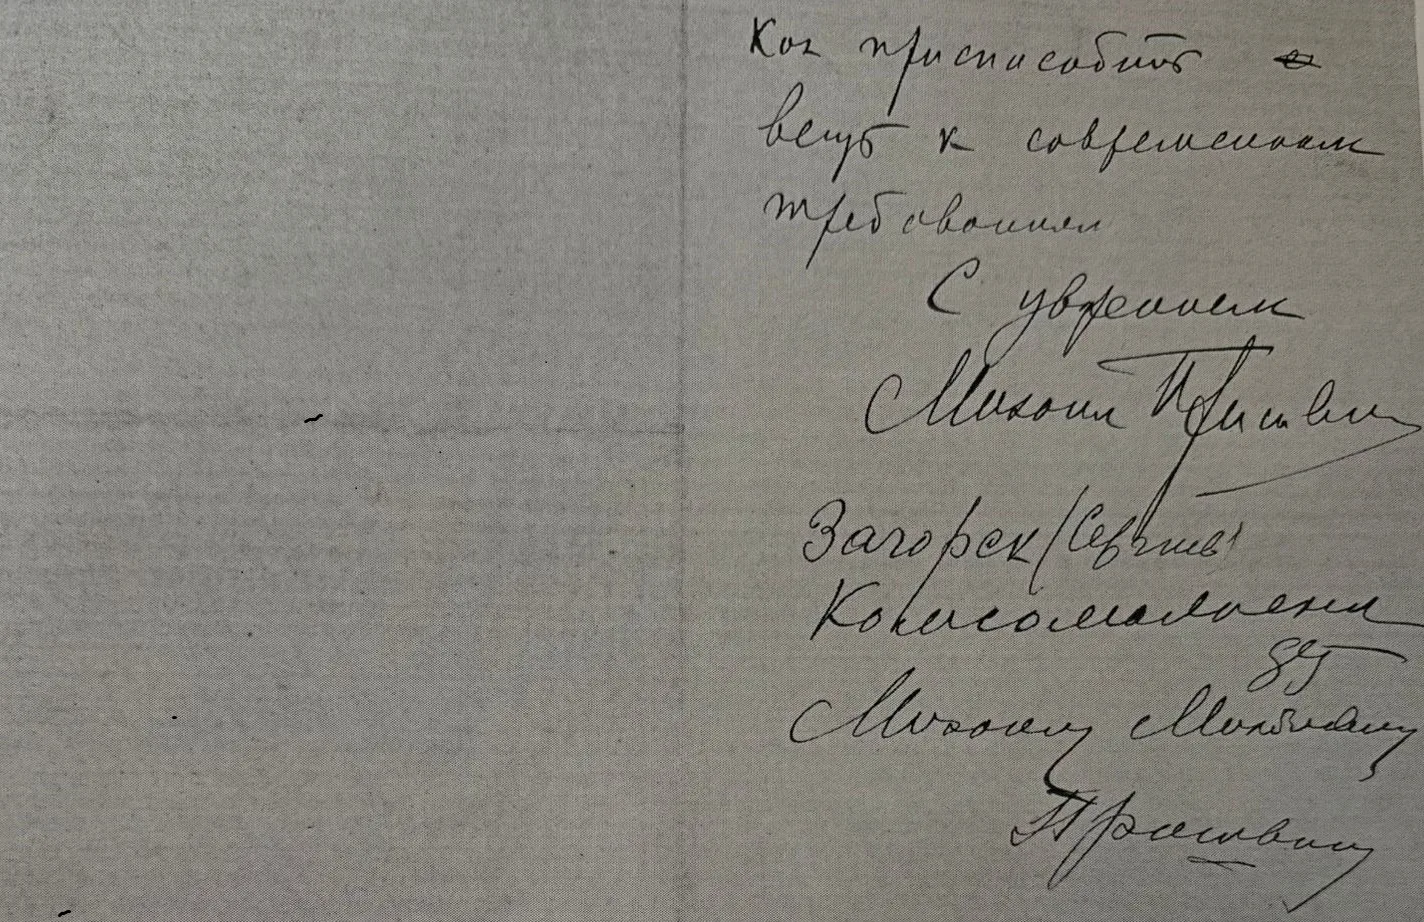 Как приспособить
вещь к современным
требованиям
С уважением
Михаил Пришвин
Загорск (Сергиев)
Комсомольская
85
Михаилу Михайловичу
Пришвину